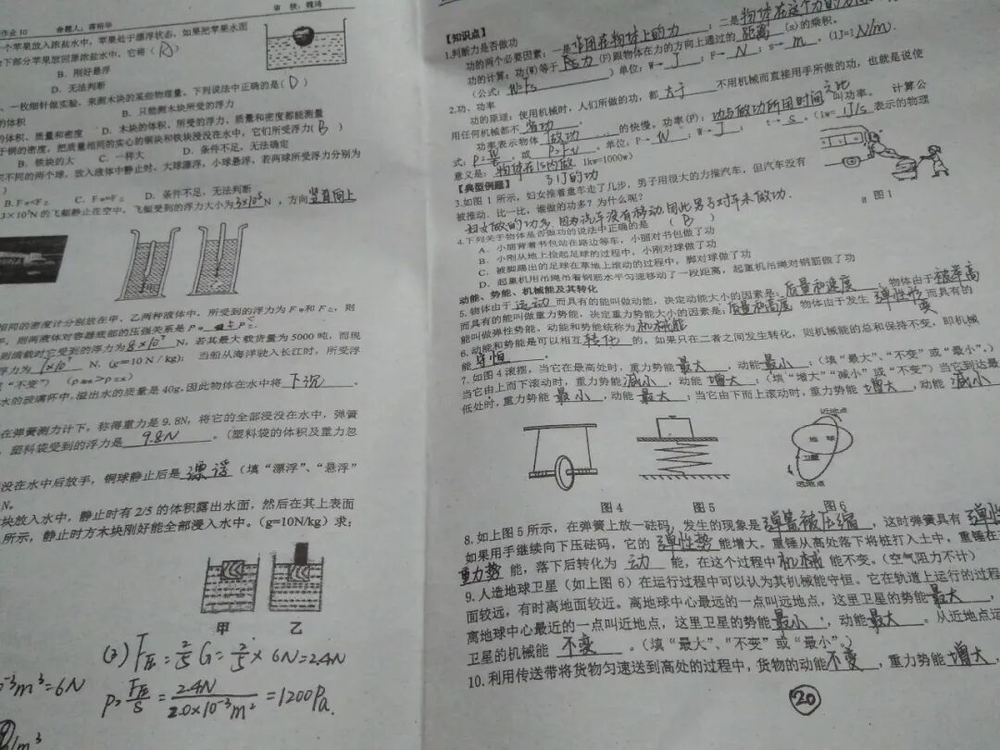 作业10 命题人：蒋裕华 审 核：魏琦
一个苹果放入浓盐水中，苹果处于漂浮状态，如果把苹果水面
下部分苹果放回原浓盐水中，它将（D）
B．刚好悬浮
D．无法判断
、一枚细针做实验，来测木块的某些物理量。下列说法中正确的是（D）
的体积 B．只能测木块所受的浮力
的体积、质量和密度 D．木块的体积、所受的浮力、质量和密度都能测量
于铜的密度，把质量相同的实心的铜块和铁块浸没在水中，它们所受浮力（B）
B．铁块的大 C．一样大 D．条件不足，无法确定
不同的两个球，放入液体中静止时，大球漂浮，小球悬浮，若两球所受浮力分别为
B．F甲<F乙 C．F甲=F乙 D．条件不足，无法判断
3×10⁵N 的飞艇静止在空中，飞艇受到的浮力大小为 3×10⁵ N，方向 竖直向上
相同的密度计分别放在甲、乙两种液体中，所受到的浮力为 F甲和 F乙，则
则两液体对容器底部的压强关系是 P甲
则满载时它受到的浮力为 8×10⁷ N，若其最大载货量为 5000 吨，而现
浮力为 1×10⁷ N。(g=10 N / kg)； 当船从海洋驶入长江时，所受浮
"不变"）
水的玻璃杯中，溢出水的质量是 40g，因此物体在水中将 下沉 。
在弹簧测力计下，称得重力是 9.8N，将它的全部浸没在水中，弹簧
塑料袋受到的浮力是 9.8N 。（塑料袋的体积及重力忽
没在水中后放手，铜球静止后是 漂浮 （填"漂浮"、"悬浮"
N。
块放入水中，静止时有 2/5 的体积露出水面，然后在其上表面
所示，静止时方木块刚好能全部浸入水中。(g=10N/kg）求：
甲 乙
(3) F压=2/5 G=2/5×6N=2.4N
⁻³m³=6N
P=F压/S=2.4N/2.0×10⁻³m²=1200Pa.
/m³
【知识点】
1.判断力是否做功
功的两个必要因素：一是 作用在物体上的力 ；二是 物体在这个力的方向
功的计算：功(W)等于 力 (F)跟物体在力的方向上通过的 距离 (s)的乘积。
（公式： W=Fs ）单位：W→ J ；F→ N ；s→ m 。(1J=1 N/m.
2.功、功率
功的原理：使用机械时，人们所做的功，都 大于 不用机械而直接用手所做的功，也就是说使
用任何机械都不 省功 。
功率表示物体 做功 的快慢。功率(P)： 功与做功所用时间之比 叫功率。 计算公
式： 或 P=Fv 。单位：P→ W ；W→ J ； t→ s 。(1w= 1J/s 表示的物理
意义是： 物体在1s内做了1J的功 1kw=1000w)
【典型例题】
3.如图 1 所示，妇女推着童车走了几步，男子用很大的力推汽车，但汽车没有
被推动．比一比，谁做的功多？为什么呢？
妇女做的功多，因为汽车没有移动，因此男子对车未做功．
图 1
4.下列关于物体是否做功的说法中正确的是 （ B ）
A．小丽背着书包站在路边等车，小丽对书包做了功
B．小刚从地上捡起足球的过程中，小刚对球做了功
C．被脚踢出的足球在草地上滚动的过程中，脚对球做了功
D．起重机用吊绳吊着钢筋水平匀速移动了一段距离，起重机吊绳对钢筋做了功
动能、势能、机械能及其转化
5．物体由于 运动 而具有的能叫做动能，决定动能大小的因素是： 质量和速度 ，物体由于 被举高
而具有的能叫做重力势能，决定重力势能大小的因素是： 质量和高度 物体由于发生 弹性形变 而具有的
能叫做弹性势能，动能和势能统称为 机械能
6．动能和势能是可以相互 转化 的。如果只在二者之间发生转化，则机械能的总和保持不变，即机械
能 守恒 。
7．如图 4 滚摆，当它在最高处时，重力势能 最大 ，动能 最小 ；（填"最大"、"不变"或"最小"。）
当它由上而下滚动时，重力势能 减小 ，动能 增大 ；（填"增大""减小"或"不变"）当它到达最
低处时，重力势能 最小 ，动能 最大 ；当它由下而上滚动时，重力势能 增大 ，动能 减小
近地点
地 球
卫星
远地点
图 4 图 5 图 6
8．如上图 5 所示，在弹簧上放一砝码，发生的现象是 弹簧被压缩 ，这时弹簧具有 弹性
如果用手继续向下压砝码，它的 弹性势 能增大。重锤从高处落下将桩打入土中，重锤在
重力势 能，落下后转化为 动 能，在这个过程中 机械 能不变。（空气阻力不计）
9．人造地球卫星（如上图 6）在运行过程中可以认为其机械能守恒。它在轨道上运行的过程
面较远，有时离地面较近。离地球中心最远的一点叫远地点，这里卫星的势能 最大 ，
离地球中心最近的一点叫近地点，这里卫星的势能 最小 ，动能 最大 。从近地点运
卫星的机械能 不变 。（填"最大"、"不变"或"最小"。）
10．利用传送带将货物匀速送到高处的过程中，货物的动能 不变 ，重力势能 增大 ，
20